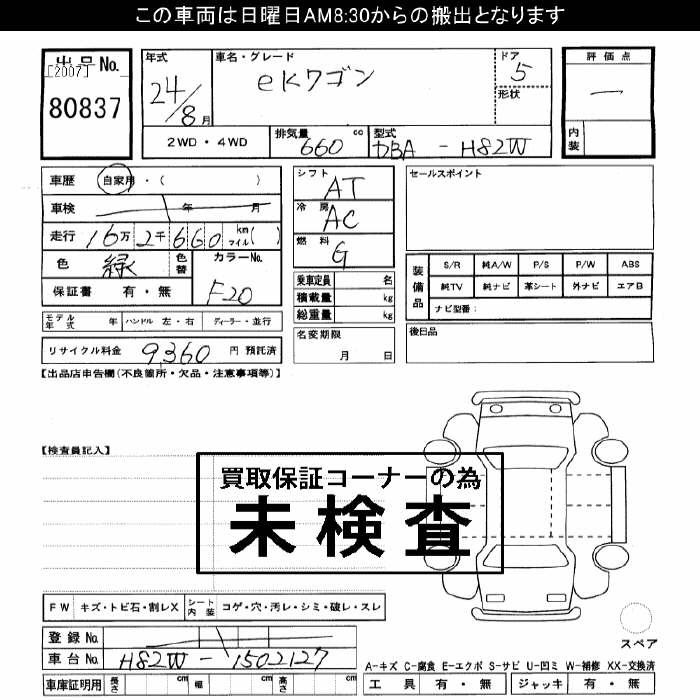 この車両は日曜日AM8:30からの搬出となります
出品No.
[2007]
80837
年式
24/8月
車名・グレード
eKワゴン
ドア
5
形状
評価点
一
内装
2WD・4WD
排気量
660 cc
型式
DBA-H82W
車歴 自家用・( )
車検 年 月
走行 16万2千660 km マイル( )
色 緑 色替 カラーNo. F20
保証書 有・無
モデル年式 年 ハンドル 左・右 ディーラー・並行
リサイクル料金 9,360 円 預託済
シフト AT
冷房 AC
燃料 G
乗車定員 名
積載量 kg
総重量 kg
名変期限
月 日
セールスポイント
装備品
S/R 純A/W P/S P/W ABS
純TV 純ナビ 革シート 外ナビ エアB
ナビ型番:
後日品
【出品店申告欄(不良箇所・欠品・注意事項等)】
【検査員記入】
買取保証コーナーの為
未検査
FW キズ・トビ石・割レX シート内装 コゲ・穴・汚レ・シミ・破レ・スレ
登録No.
車台No. H82W-1502127
車庫証明用 長さ cm 幅 cm 高さ cm
スペア
A-キズ C-腐食 E-エクボ S-サビ U-凹ミ W-補修 XX-交換済
工具 有・無 ジャッキ 有・無